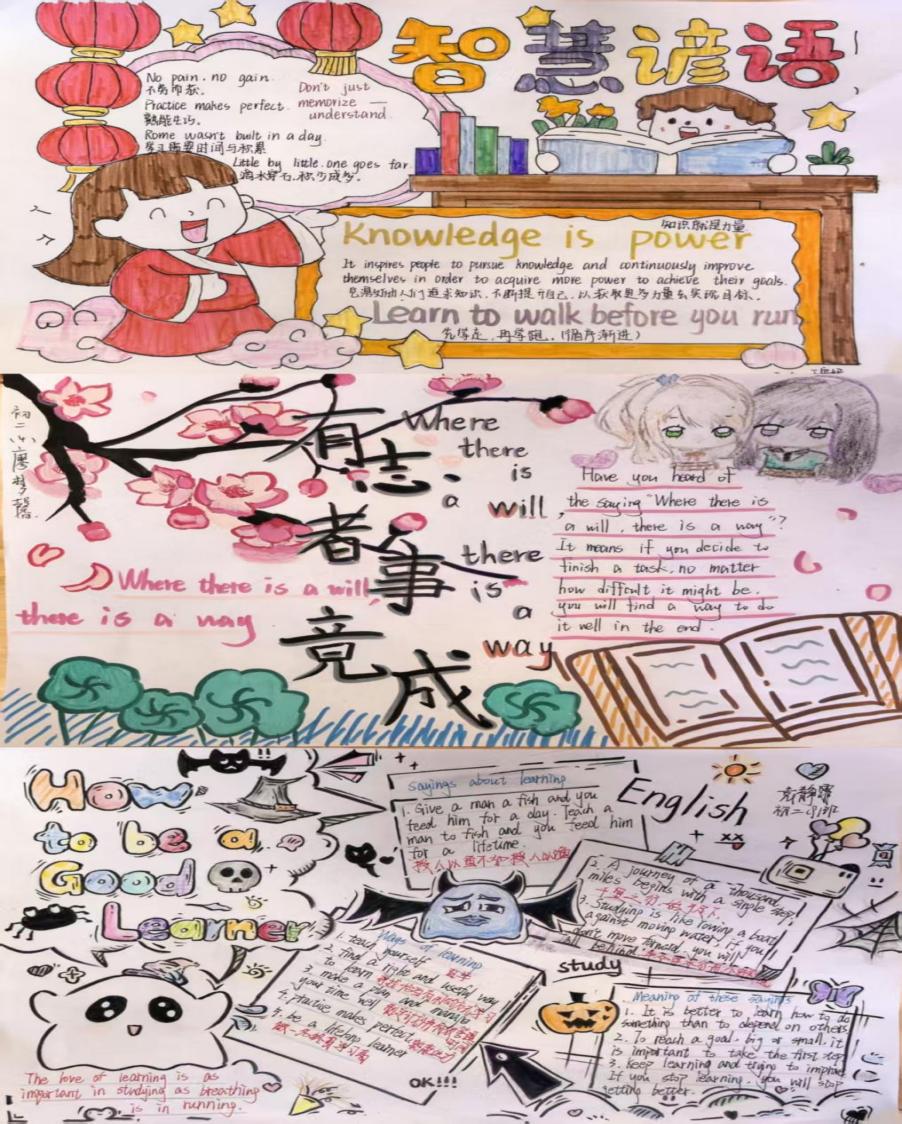 智慧谚语
No pain. no gain.
不劳即获.
Don't just
memorize —
understand.
Practice makes perfect.
熟能生巧.
Rome wasn't built in a day.
学习需要时间与积累
Little by little. one goes far.
滴水穿石.积少成多.
Knowledge is power
知识就是力量
It inspires people to pursue knowledge and continuously improve
themselves in order to acquire more power to achieve their goals.
它激励人们追求知识,不断提升自己,以获取更多力量去实现目标.
Learn to walk before you run
先学走,再学跑..(循序渐进)
有志者事竟成
Where
there
is
a will,
there
is
a
way
Where there is a will,
there is a way
Have you heard of
the saying "Where there is
a will, there is a way"?
It means if you decide to
finish a task, no matter
how difficult it might be.
you will find a way to do
it well in the end.
How
to be a
Good
Learner
sayings about learning
1. Give a man a fish and you
feed him for a day. Teach a
man to fish and you feed him
for a lifetime.
授人以鱼不如授人以渔
English
2. A journey of a thousand
miles begins with a single step.
3. Studying is like rowing a boat
against moving water, if you
don't move forward, you will
fall behind
Ways of learning
1. teach yourself 自学
2. find a right and useful way
to learn
3. make a plan and manage
your time well
4. practice makes perfect
5. be a lifelong learner
OK!!!
study
Meaning of these sayings
1. It is better to learn how to do
something than to depend on others
2. To reach a goal, big or small, it
is important to take the first step
3. keep learning and trying to improve
If you stop learning, you will stop
getting better.
The love of learning is as
important in studying as breathing
is in running.